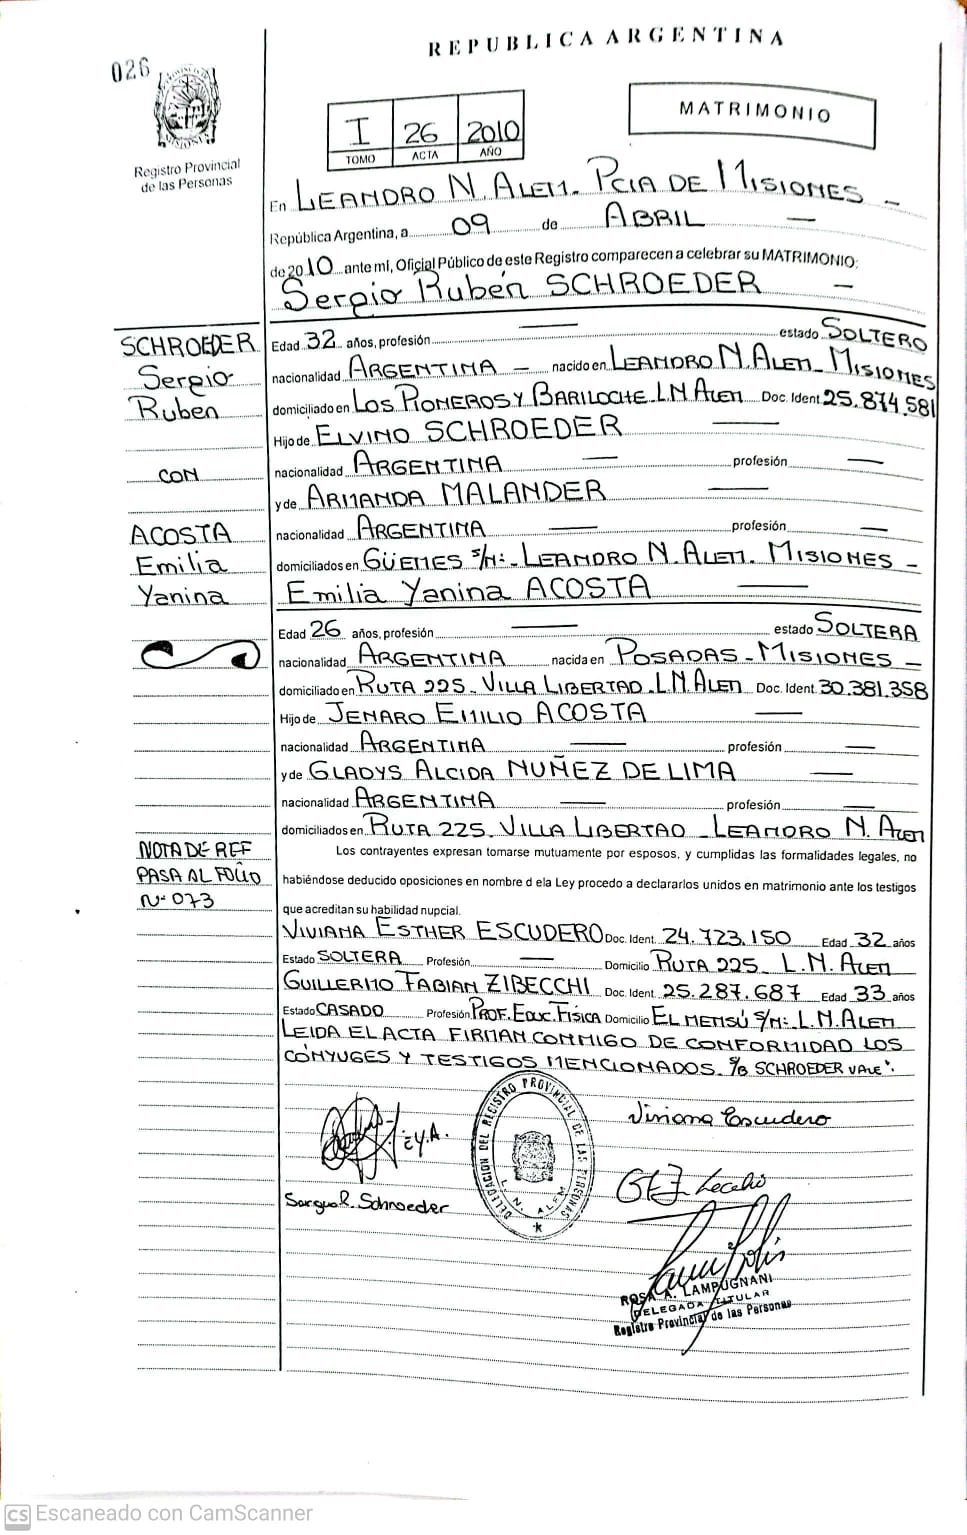 REPUBLICA ARGENTINA
026
MATRIMONIO
I 26 2010
TOMO ACTA AÑO
Registro Provincial
de las Personas
En LEANDRO N. ALEM. PCIA DE MISIONES -
República Argentina, a 09 de ABRIL —
de 2010 ante mí, Oficial Público de este Registro comparecen a celebrar su MATRIMONIO:
Sergio Rubén SCHROEDER —
SCHROEDER
Sergio
Ruben
CON
ACOSTA
Emilia
Yanina
Edad 32 años, profesión — estado SOLTERO
nacionalidad ARGENTINA — nacido en LEANDRO N. ALEM - MISIONES
domiciliado en LOS PIONEROS Y BARILOCHE - L.N ALEM Doc. Ident. 25.874.581
Hijo de ELVINO SCHROEDER —
nacionalidad ARGENTINA — profesión —
y de ARMANDA MALANDER —
nacionalidad ARGENTINA — profesión —
domiciliados en GÜEMES S/N:- LEANDRO N. ALEM. MISIONES -
Emilia Yanina ACOSTA —
Edad 26 años, profesión — estado SOLTERA
nacionalidad ARGENTINA nacida en POSADAS - MISIONES -
domiciliado en RUTA 225. VILLA LIBERTAD - L.N ALEM Doc. Ident. 30.381.358
Hijo de JENARO EMILIO ACOSTA —
nacionalidad ARGENTINA — profesión —
y de GLADYS ALCIDA NUÑEZ DE LIMA —
nacionalidad ARGENTINA — profesión —
domiciliados en RUTA 225. VILLA LIBERTAD - LEANDRO N. ALEM
NOTA DE REF
PASA AL FOLIO
Nº 073
Los contrayentes expresan tomarse mutuamente por esposos, y cumplidas las formalidades legales, no
habiéndose deducido oposiciones en nombre d ela Ley procedo a declararlos unidos en matrimonio ante los testigos
que acreditan su habilidad nupcial.
VIVIANA ESTHER ESCUDERO Doc. Ident. 24.723.150 Edad 32 años
Estado SOLTERA Profesión — Domicilio RUTA 225. L.N. ALEM
GUILLERMO FABIAN ZIBECCHI Doc. Ident. 25.287.687 Edad 33 años
Estado CASADO Profesión PROF. EDUC. FÍSICA Domicilio EL MENSÚ S/N: L.N. ALEM
LEIDA EL ACTA FIRMAN CONMIGO DE CONFORMIDAD LOS
CÓNYUGES Y TESTIGOS MENCIONADOS. S/B SCHROEDER VALE:
Viviana Escudero
E.Y.A.
DELEGACION DEL REGISTRO PROVINCIAL DE LAS PERSONAS
L. N. ALEM
Sergio R. Schroeder
ROSA A. LAMPUGNANI
DELEGADA TITULAR
Registro Provincial de las Personas
CS Escaneado con CamScanner